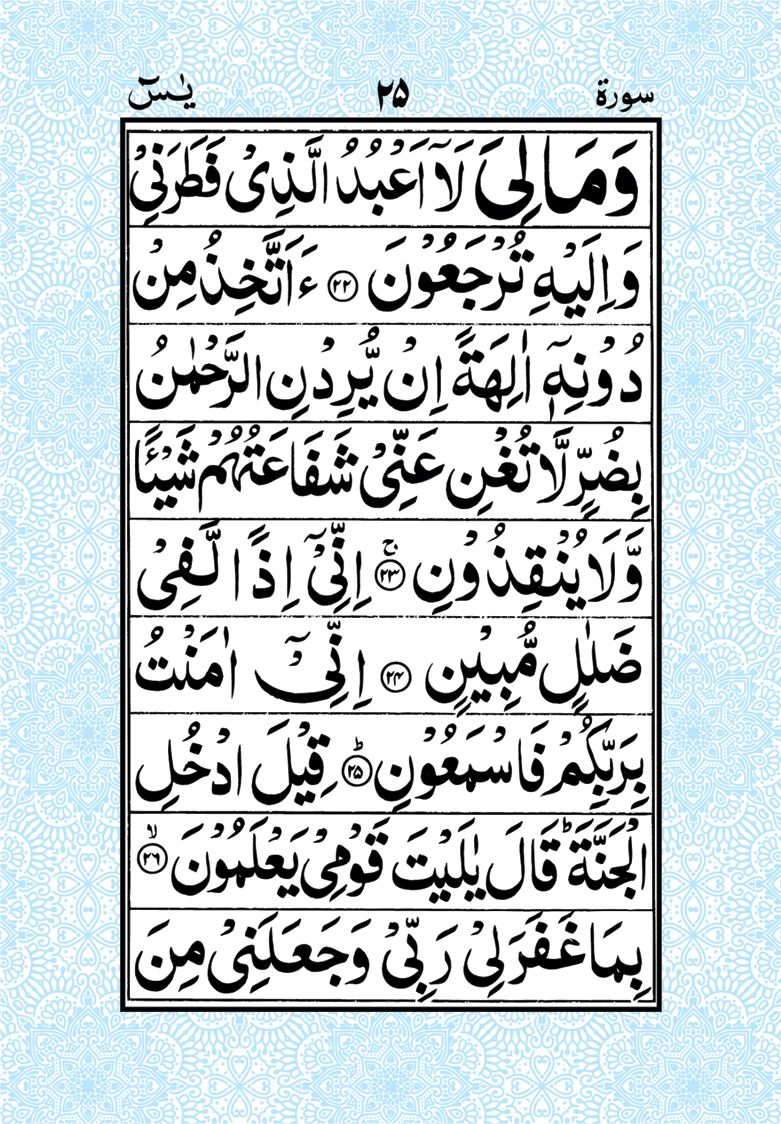 سورة ۲۵ يٰسٓ
وَمَالِیَ لَاۤ اَعْبُدُ الَّذِیْ فَطَرَنِیْ
وَاِلَیْهِ تُرْجَعُوْنَ ﴿۲۲﴾ ءَاَتَّخِذُ مِنْ
دُوْنِهٖۤ اٰلِهَةً اِنْ یُّرِدْنِ الرَّحْمٰنُ
بِضُرٍّ لَّا تُغْنِ عَنِّیْ شَفَاعَتُهُمْ شَیْئًا
وَّلَا یُنْقِذُوْنِ ۚ﴿۲۳﴾ اِنِّیْۤ اِذًا لَّفِیْ
ضَلٰلٍ مُّبِیْنٍ ﴿۲۴﴾ اِنِّیْۤ اٰمَنْتُ
بِرَبِّكُمْ فَاسْمَعُوْنِ ؕ﴿۲۵﴾ قِیْلَ ادْخُلِ
الْجَنَّةَ ؕ قَالَ یٰلَیْتَ قَوْمِیْ یَعْلَمُوْنَ ۙ﴿۲۶﴾
بِمَا غَفَرَ لِیْ رَبِّیْ وَجَعَلَنِیْ مِنَ